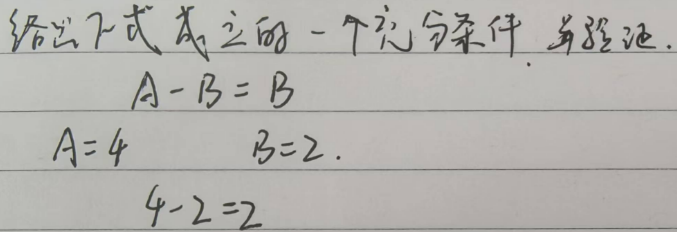 给出下式成立的一个充分条件.并验证.
A-B=B
A=4 B=2.
4-2=2